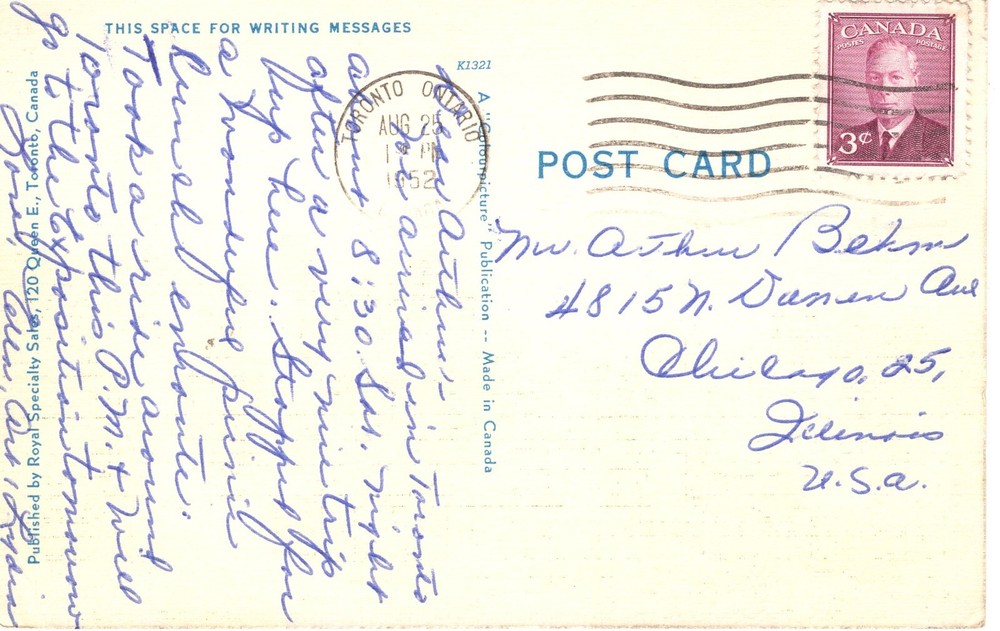 THIS SPACE FOR WRITING MESSAGES
Dear Arthur:-
arrived in Toronto
about 8:30. Sat. night
after a very nice trip
up here. Stopped for
a wonderful picnic
lunch enroute.
Took a ride around
Toronto this P.M. & will
go to the Exposition tomorrow
K1321
TORONTO ONTARIO
AUG 25
PM
1952
A "Colourpicture" Publication -- Made in Canada
Published by Royal Specialty Sales, 120 Queen E., Toronto, Canada
POST CARD
CANADA
POSTES POSTAGE
3¢
Mr. Arthur Behm
4815 N. Damen Ave
Chicago, 25,
Illinois
U.S.A.